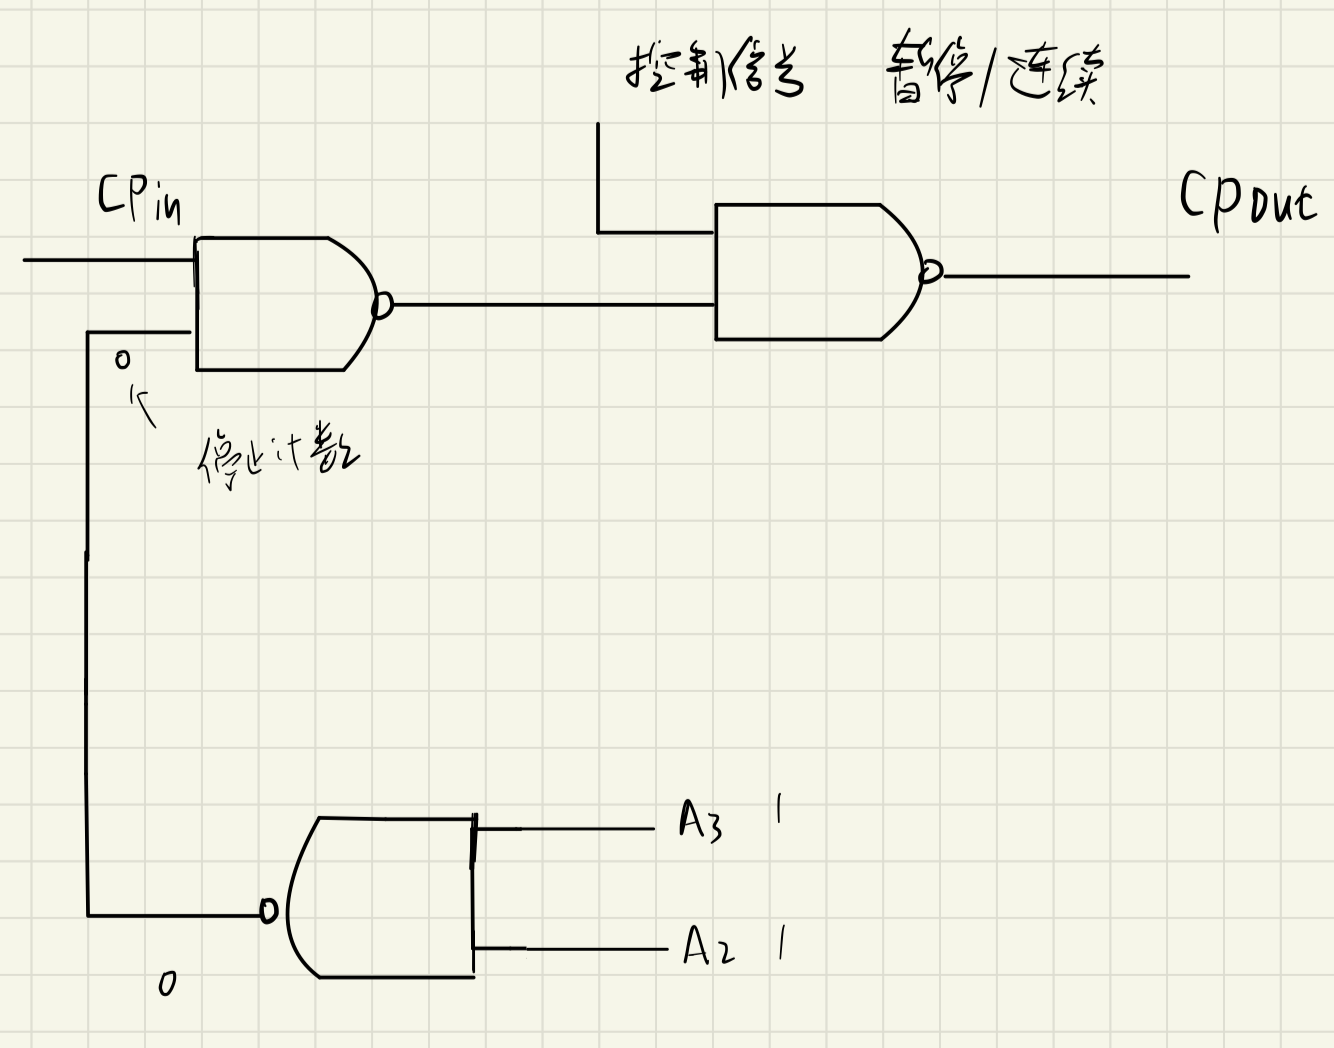 控制信号 暂停/连续
CPin
CPout
0
停止计数
A3 1
A2 1
0